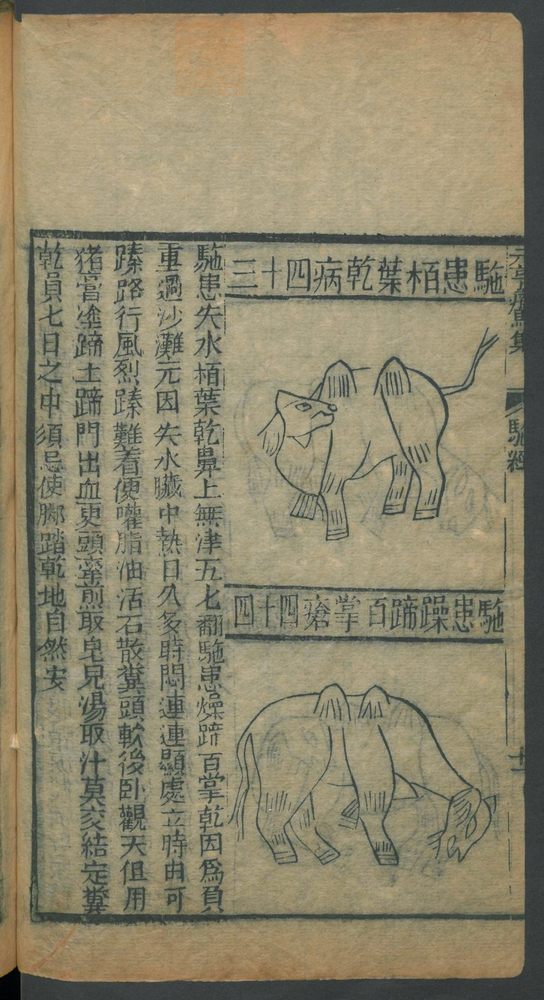 元亨療馬集 駞經
駞患栢葉乾病四十三
駞患躁蹄百掌瘡四十四
駞患失水栢葉乾鼻上無津五七翻駞患燥蹄百掌乾因爲負
重過沙灘元因失水臟中熱日久多時悶連連顯處立時由可
路行風烈難着便嚾脂油活石散糞頭軟後卧觀天但用
猪膏塗蹄上蹄門出血更頭煎取皂見湯取汁莫交結定糞
乾員七日之中須忌使脚踏乾地自然安